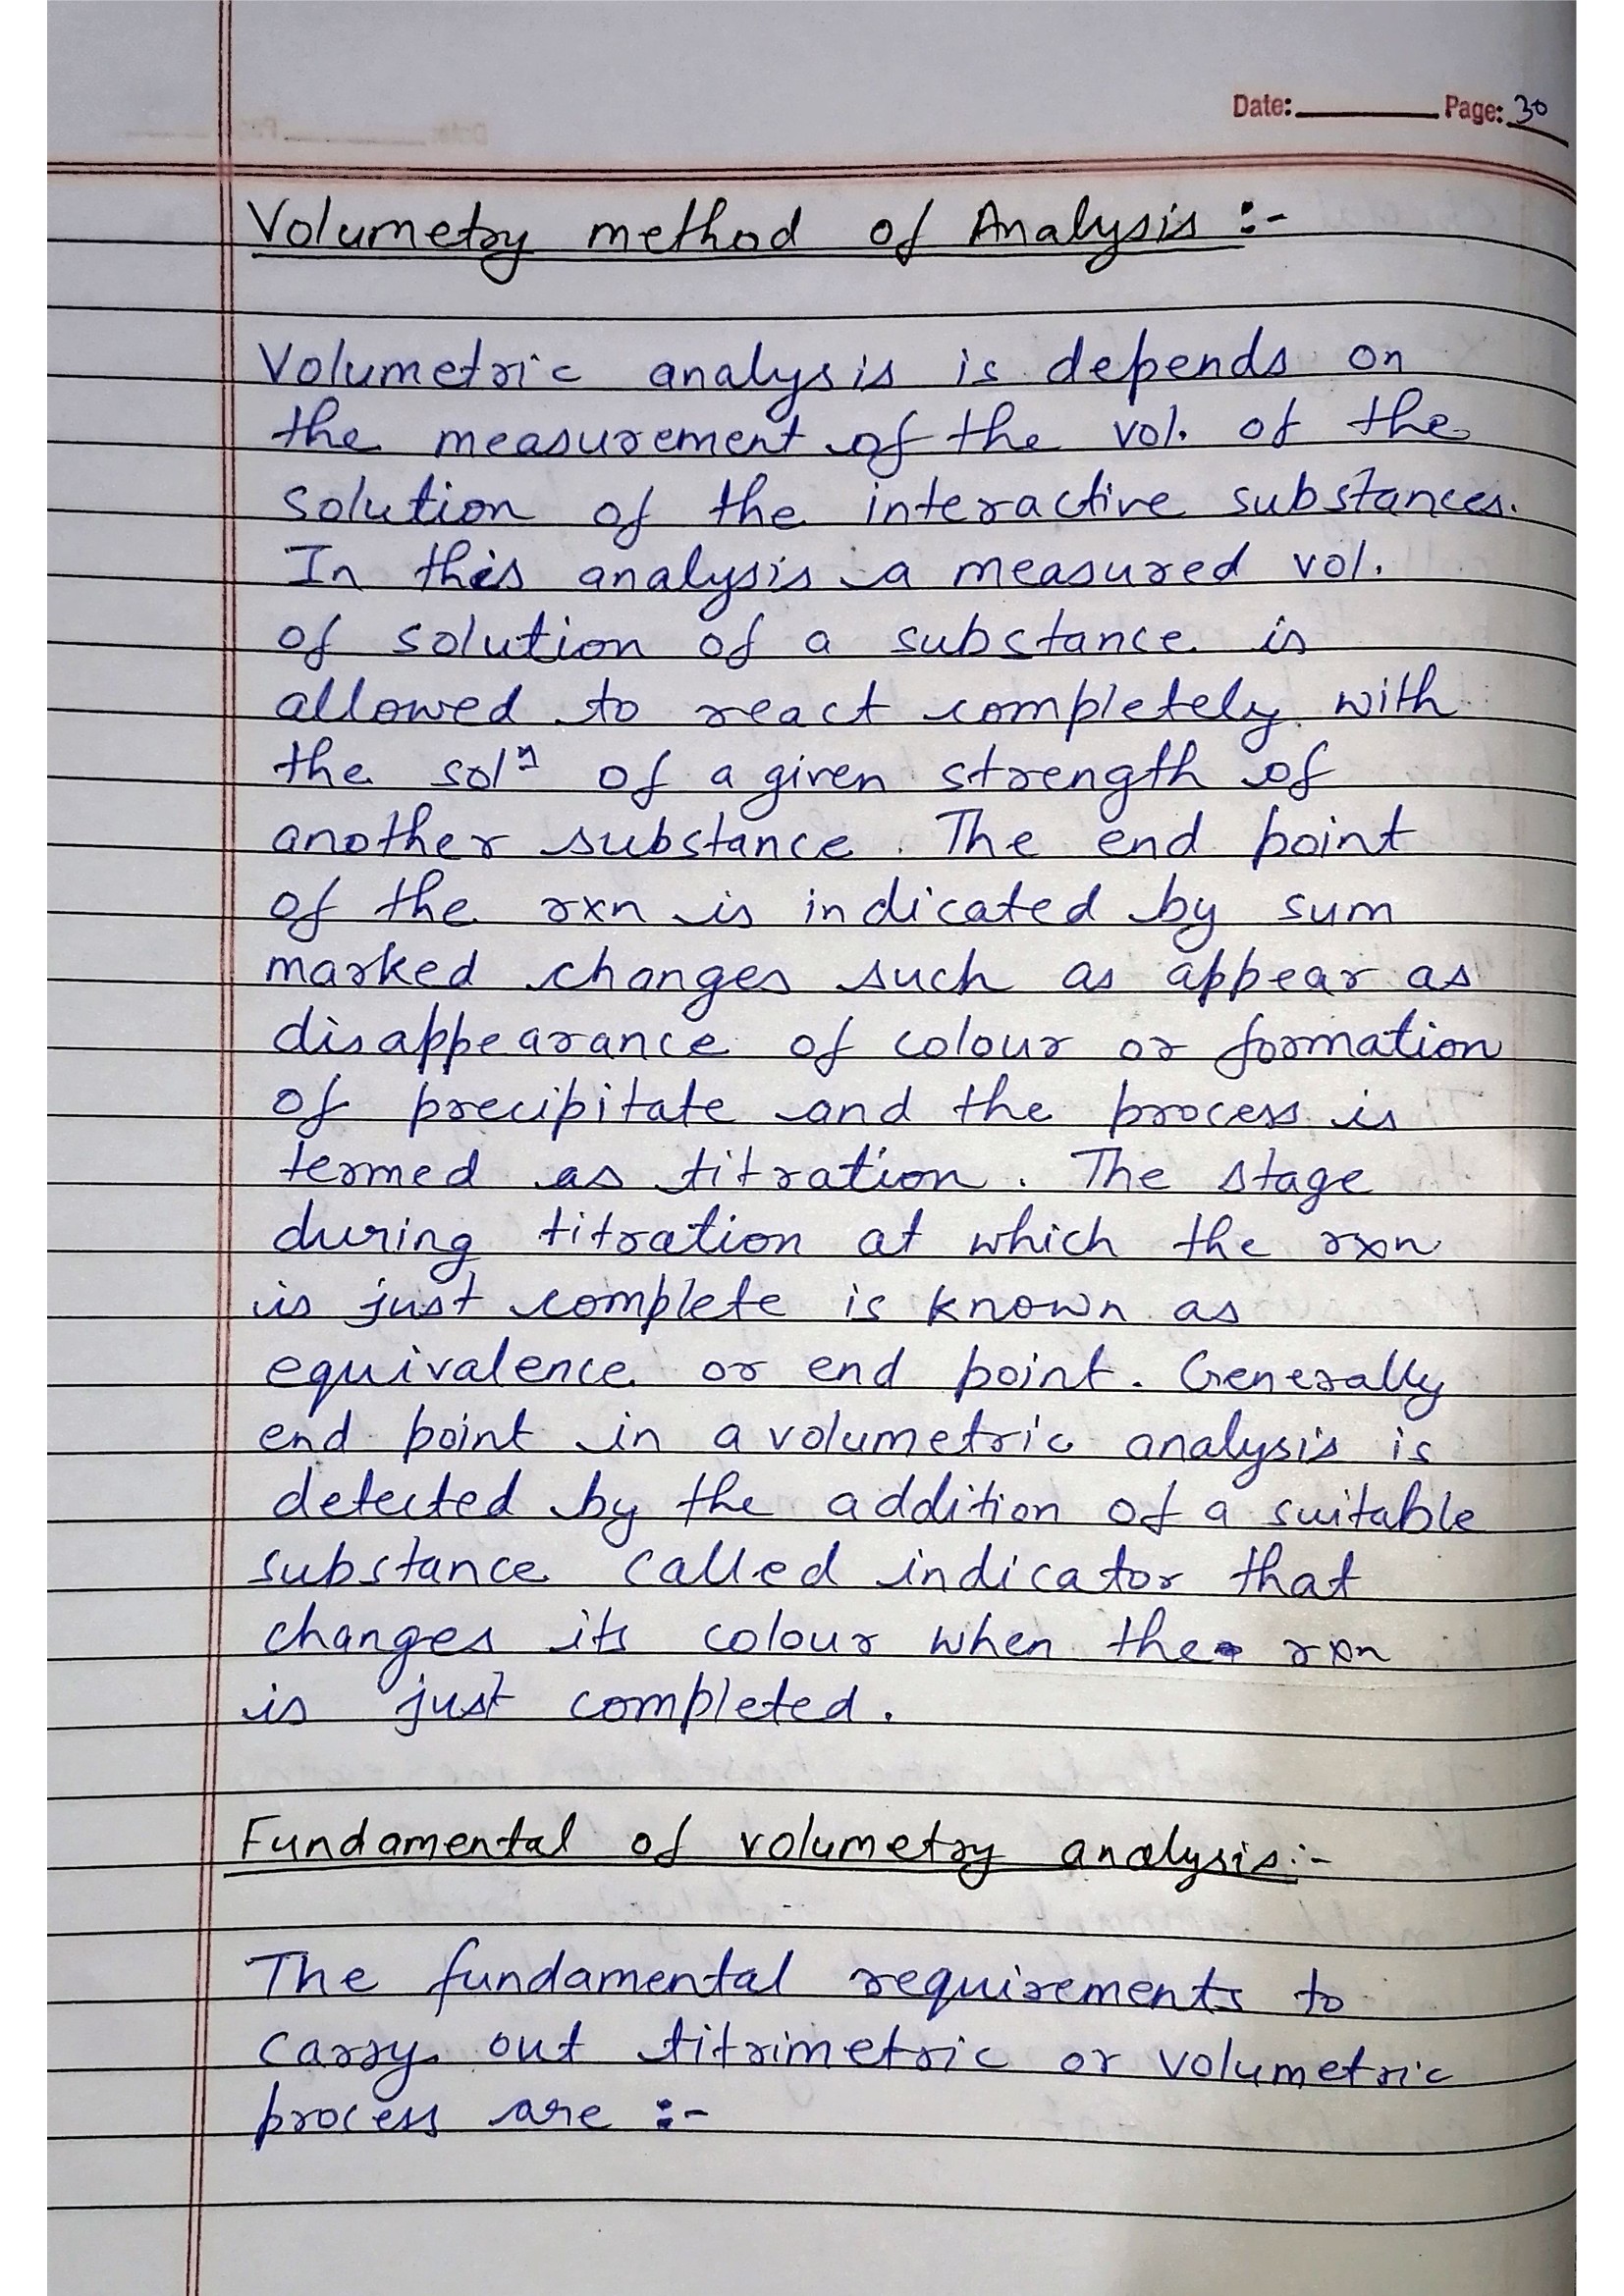 Date: Page: 30
Volumetry method of Analysis :-
Volumetric analysis is depends on
the measurement of the vol. of the
solution of the interactive substances.
In this analysis a measured vol.
of solution of a substance is
allowed to react completely with
the solⁿ of a given strength of
another substance. The end point
of the rxn is indicated by sum
marked changes such as appear as
disappearance of colour or formation
of precipitate and the process is
termed as titration. The stage
during titration at which the rxn
is just complete is known as
equivalence or end point. Generally
end point in a volumetric analysis is
detected by the addition of a suitable
substance called indicator that
changes its colour when the rxn
is just completed.
Fundamental of volumetry analysis:-
The fundamental requirements to
carry out titrimetric or volumetric
process are :-